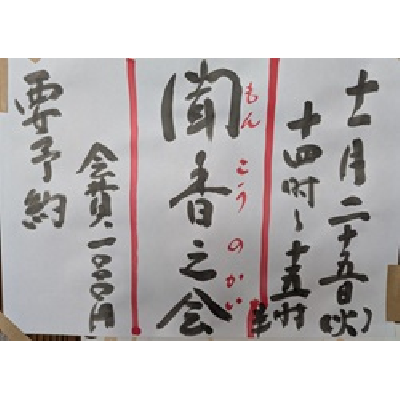 十一月二十五日(火)
十四時〜十五時半
聞香之会
もんこうのかい
会費一〇〇〇円
要予約